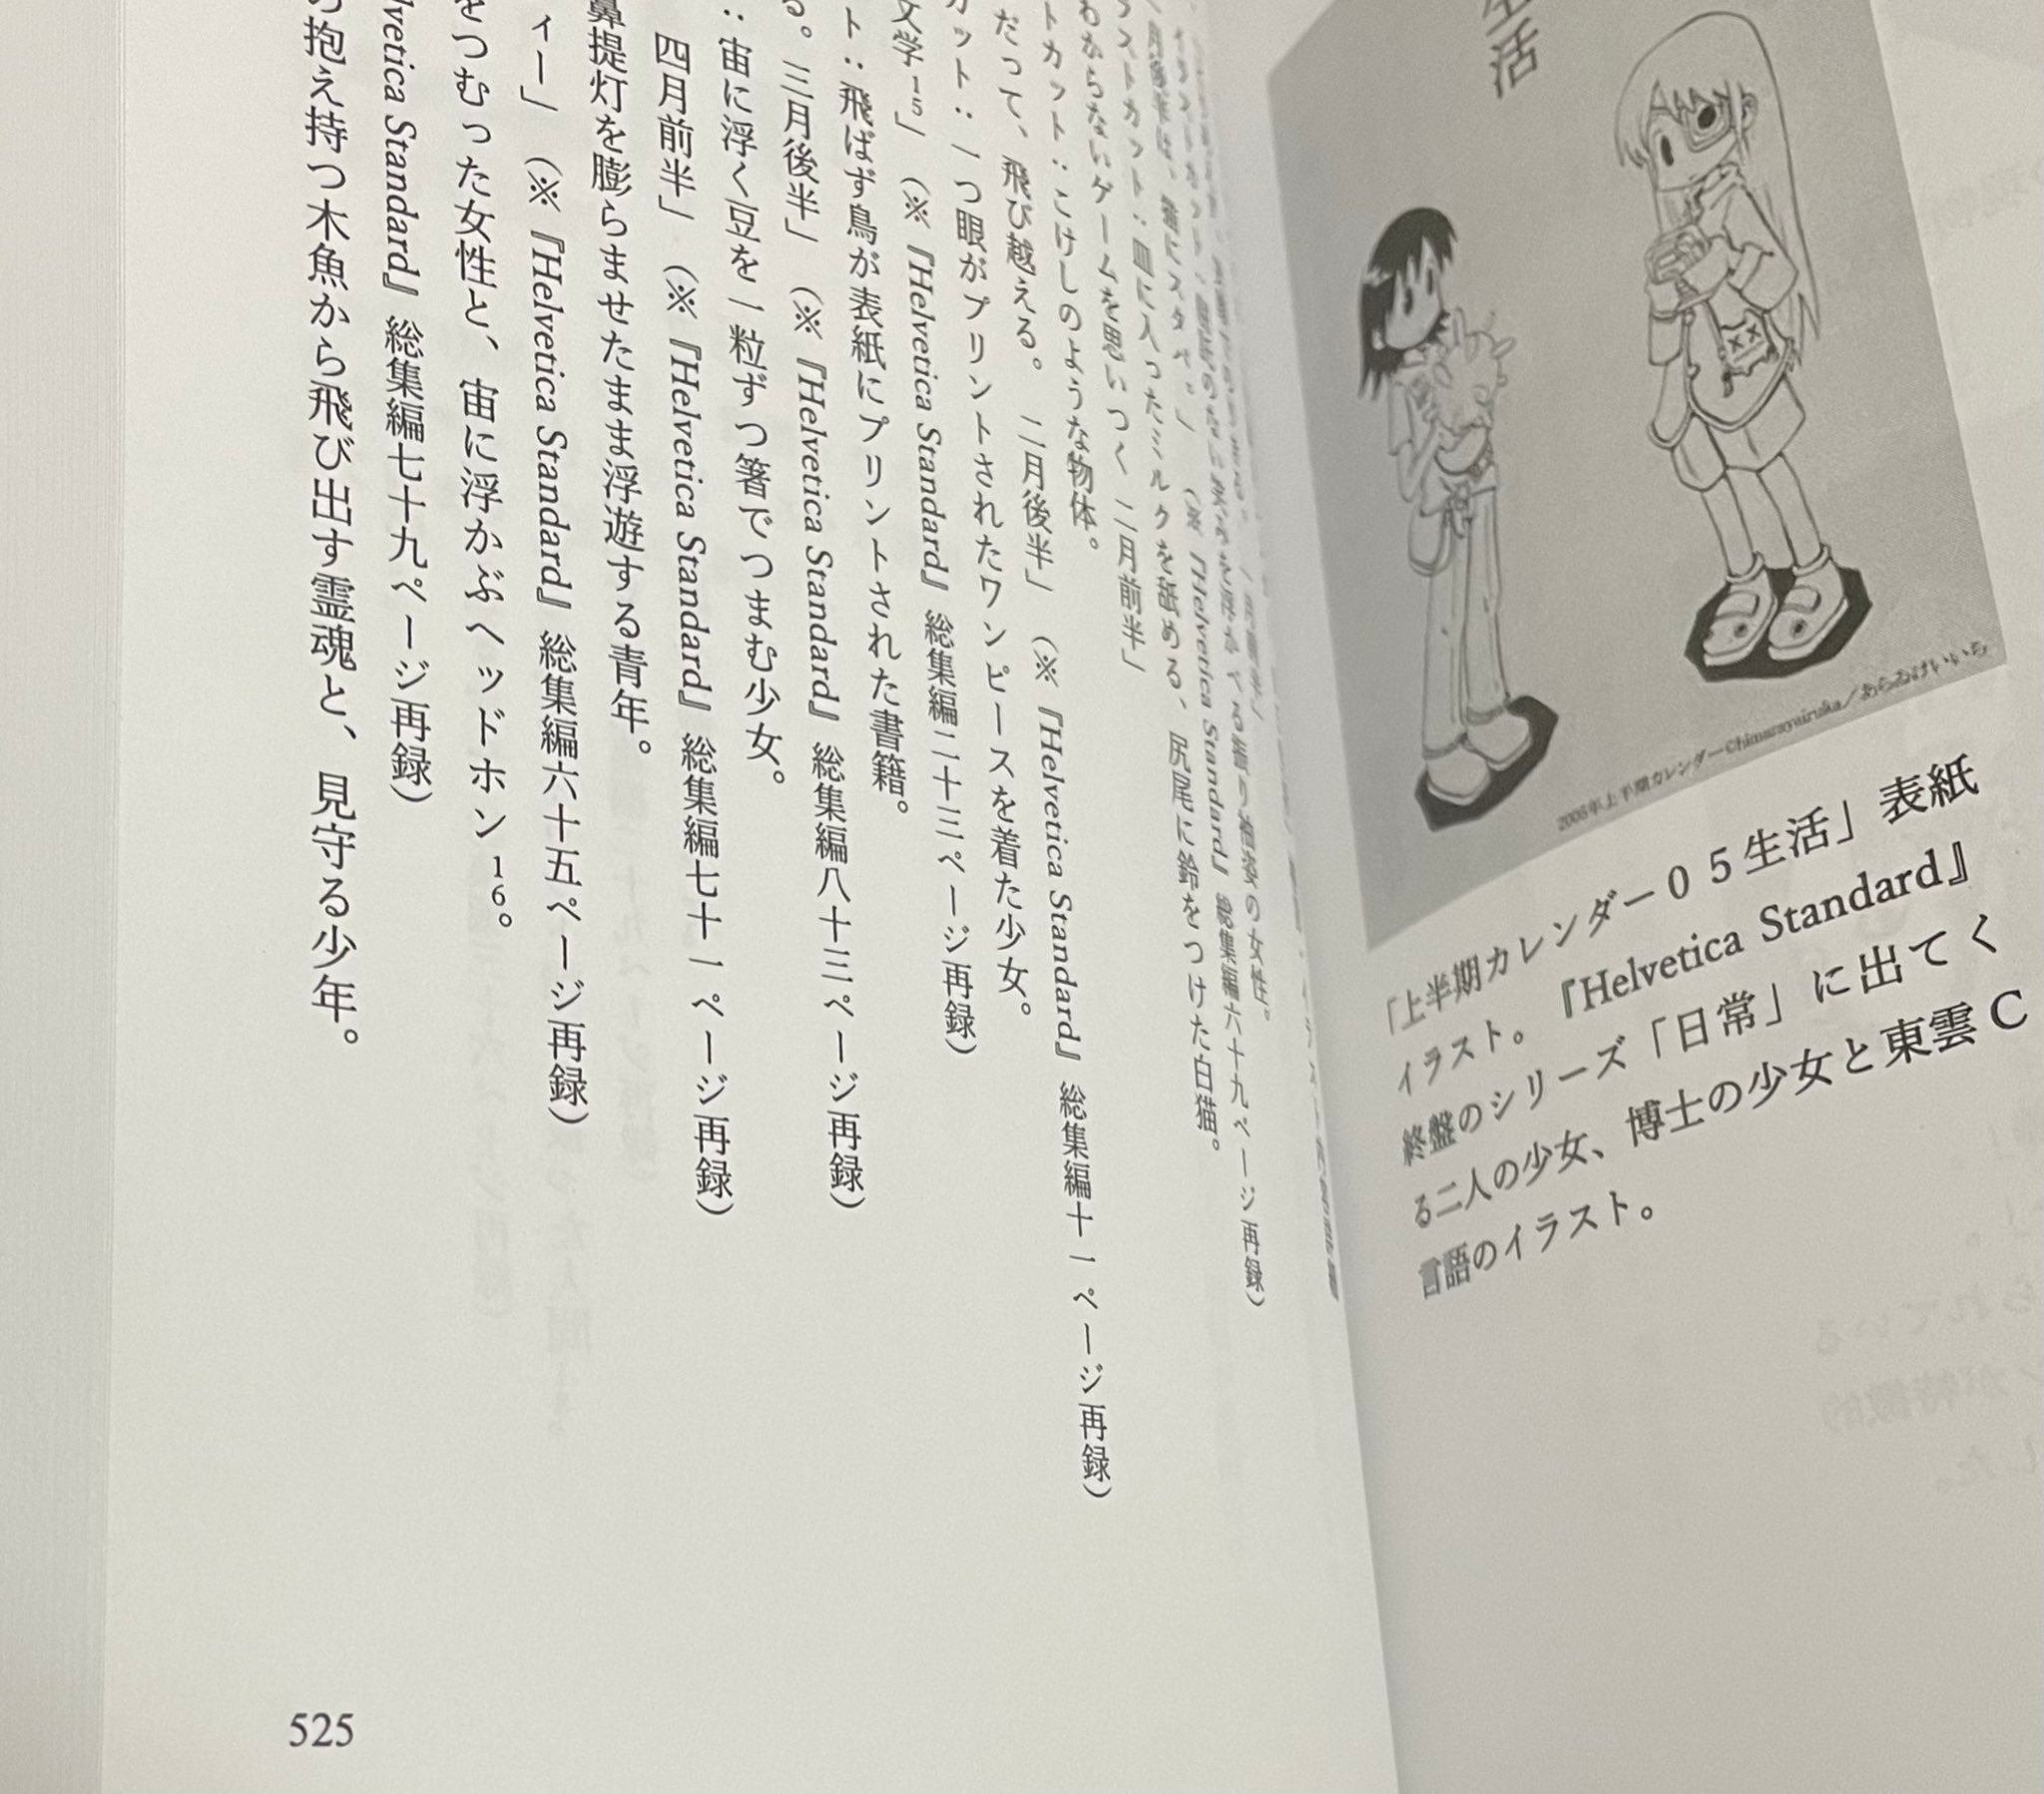 生活
2005年上半期カレンダー©himarayairuka／あらゐけいいち
「上半期カレンダー０５生活」表紙
イラスト。『Helvetica Standard』
終盤のシリーズ「日常」に出てく
る二人の少女、博士の少女と東雲C
言語のイラスト。
『Helvetica Standard』総集編六十九ページ再録）
皿に入ったミルクを舐める、尻尾に鈴をつけた白猫。
わからないゲームを思いつく 二月前半」
トカット：こけしのような物体。
だって、飛び越える。 二月後半」（※『Helvetica Standard』総集編十一ページ再録）
カット：一つ眼がプリントされたワンピースを着た少女。
文学15」（※『Helvetica Standard』総集編二十三ページ再録）
ト：飛ばず鳥が表紙にプリントされた書籍。
る。三月後半」（※『Helvetica Standard』総集編八十三ページ再録）
：宙に浮く豆を一粒ずつ箸でつまむ少女。
四月前半」（※『Helvetica Standard』総集編七十一ページ再録）
鼻提灯を膨らませたまま浮遊する青年。
ィー」（※『Helvetica Standard』総集編六十五ページ再録）
をつむった女性と、宙に浮かぶヘッドホン16。
lvetica Standard』総集編七十九ページ再録）
の抱え持つ木魚から飛び出す霊魂と、見守る少年。
525